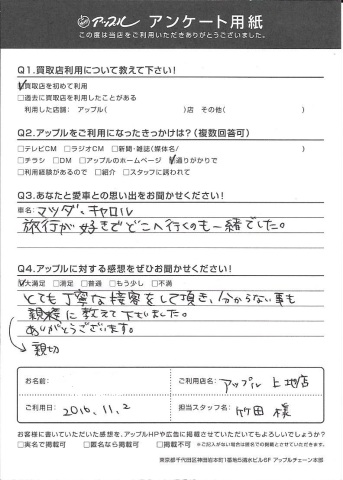 アップル アンケート用紙
この度は当店をご利用いただきありがとうございました。
Q1.買取店利用について教えて下さい!
☑買取店を初めて利用
□過去に買取店を利用したことがある
利用した店舗： アップル( )店 その他( )
Q2.アップルをご利用になったきっかけは?(複数回答可)
□テレビCM □ラジオCM □新聞・雑誌(媒体名/ )
□チラシ □DM □アップルのホームページ ☑通りがかりで
□利用経験があるので □紹介 □スタッフに誘われて
Q3.あなたと愛車との思い出をお聞かせください!
車名: マツダ・キャロル
旅行が好きでどこへ行くのも一緒でした。
Q4.アップルに対する感想をぜひお聞かせください!
☑大満足 □満足 □普通 □もう少し □不満
とても丁寧な接客をして頂き、分からない事も
親襪に教えて下さいました。
ありがとうございます。
親切
お名前:
ご利用店名: アップル 上地店
ご利用日: 2016.11.2
担当スタッフ名: 竹田 様
お客様に書いていただいた感想を、アップルHPや広告に掲載させていただいてもよろしいでしょうか?
□実名で掲載可 □匿名なら掲載可 □掲載不可 ※ご記入がない場合は匿名での掲載とさせていただきます。
東京都千代田区神田岩本町1番地5清水ビル6F アップルチェーン本部